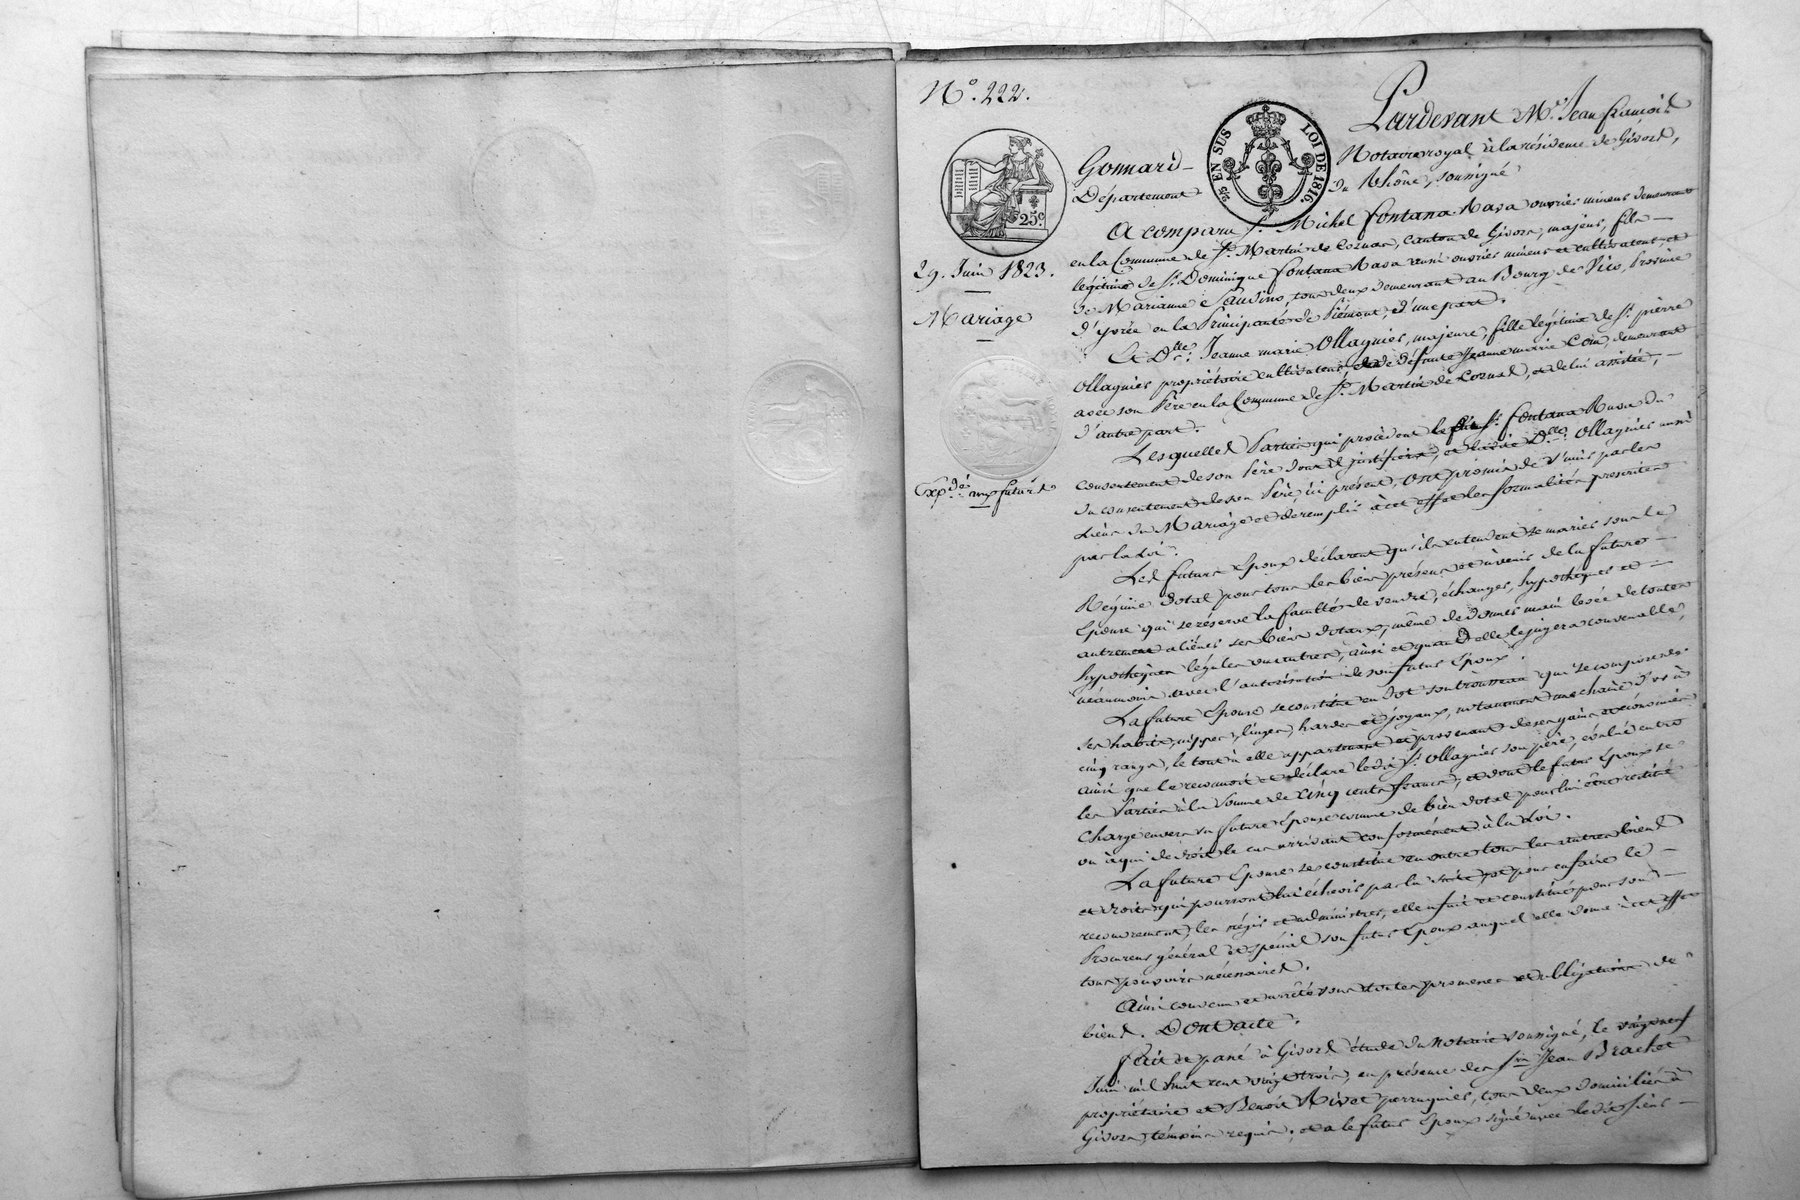 N.° 222.
25c
29. Juin 1823.
Mariage
Expdé. aux futurs
2/5 EN SUS LOI DE 1816.
Pardevant Me. Jean françois
Gonnard Notaire royal à la résidence de Givors,
Département du Rhône, soussigné
A comparu Sr. Michel fontana Rava ouvrier mineur demeurant
en la Commune de St. Martin de Cornas, canton de Givors, majeur, fils
légitime de Sr. Dominique fontana Rava aussi ouvrier mineur et cultivateur et
de Marianne è Saudino, tous deux demeurant au Bourg de Vico, Province
d'Yvrée en la Principauté de Piémont, d'une part.
Et Dlle. Jeanne marie Ollagnier, majeure, fille légitime de Sr. pierre
Ollagnier propriétaire cultivateur, et de défunte Jeanne marie Coin, demeurant
avec son Père en la Commune de St. Martin de Cornas, et de lui assistée,
d'autre part.
Lesquelles Parties qui procèdent le dit Sr. fontana Rava du
consentement de son Père dont il justifiera, et ladite Dlle. Ollagnier aussi
du consentement de son Père, ici présent, ont promis de s'unir par les
Liens du Mariage et de remplir à cet effet les formalités prescrites
par la Loi.
Les futurs Epoux déclarent qu'ils entendent se marier sous le
Régime dotal pour tous les biens présens et à venir de la future
Epouse qui se réserve la faculté de vendre, échanger, hypothéquer et
autrement aliéner ses biens dotaux, même de donner main levée de toutes
hypothèques légales ou autres, ainsi et quand elle le jugera convenable,
néanmoins avec l'autorisation de son futur Epoux.
La future Epouse se constitue en dot son trousseau qui se compose de
ses habits, nippes, linges, hardes et joyaux, notamment une chaine d'or à
cinq rangs, le tout à elle appartenant et provenant de ses gains et économies
ainsi que le reconnoit et déclare ledit Sr. Ollagnier son père, évalué entre
les Parties à la Somme de Cinq cents francs, et dont le futur Epoux se
charge envers sa future Epouse comme de bien dotal pour lui être restitué
ou à qui de droit le cas arrivant conformément à la Loi.
La future Epouse se constitue en outre tous les autres biens
et droits qui pourront lui échoir par la suite, et pour en faire le
recouvrement, les régir et administrer, elle a fait et constitué pour son
Procureur général et spécial son futur Epoux auquel elle donne à cet effet
tous pouvoirs nécessaires.
Ainsi convenu et arrêté sous toutes promesses et obligations de
biens. Dont acte.
fait et passé à Givors étude du Notaire soussigné, le vingt neuf
Juin mil huit cent vingt trois, en présence des Srs. Jean Brachet
propriétaire et Benoit Rivet perruquier, tous deux domiciliés à
Givors, témoins requis; et a le futur Epoux signé avec ledit Sieur